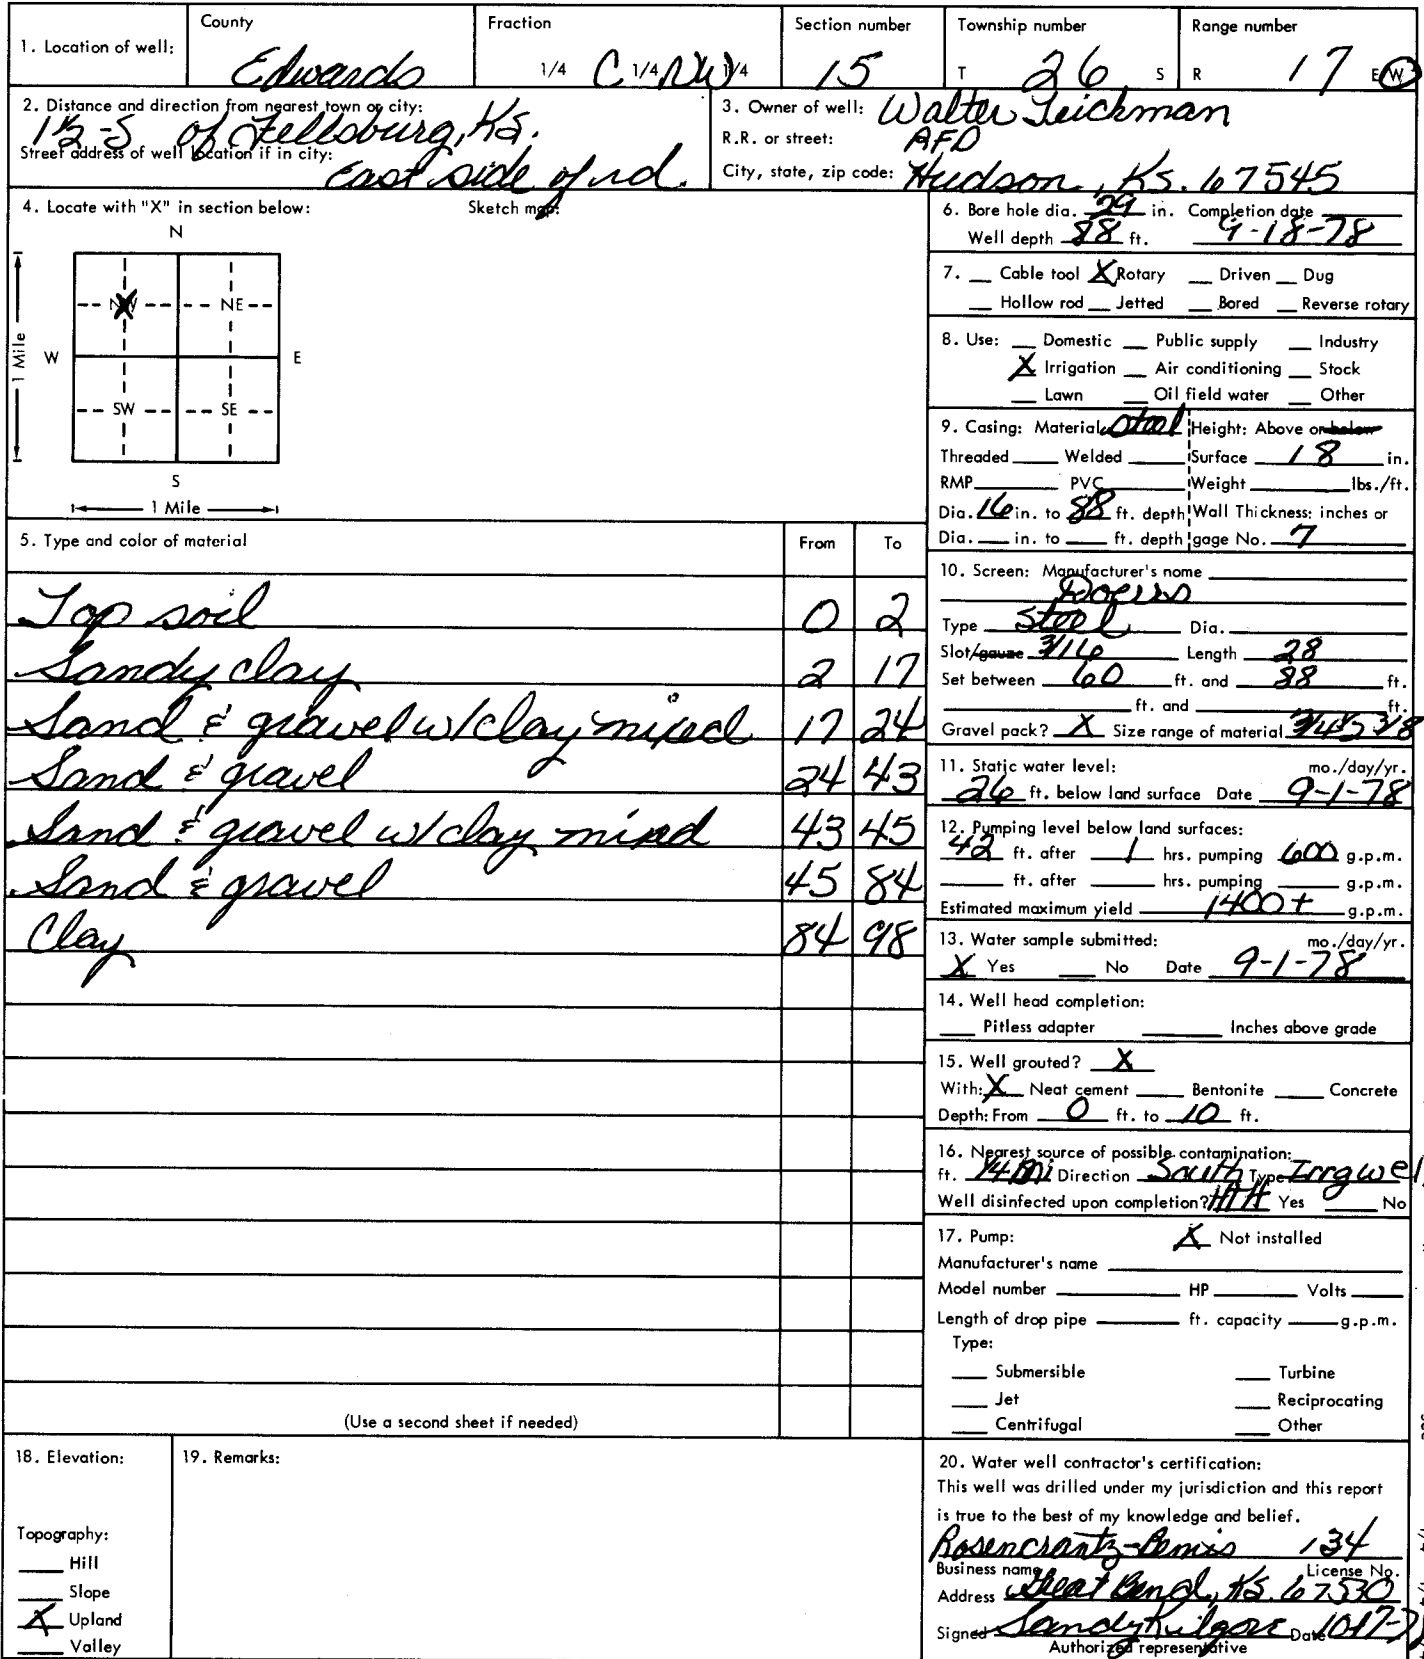 1. Location of well: County Edwards Fraction 1/4 C 1/4 NW 1/4 Section number 15 Township number T 26 S Range number R 17 E W
2. Distance and direction from nearest town or city: 1½-S of Fellsburg, Ks.
Street address of well location if in city: East side of rd.
3. Owner of well: Walter Teichman
R.R. or street: RFD
City, state, zip code: Hudson, Ks. 67545
4. Locate with "X" in section below: Sketch map:
N
NW NE
1 Mile W E
SW SE
S
1 Mile
6. Bore hole dia. 29 in. Completion date
Well depth 88 ft. 9-18-78
7. Cable tool X Rotary Driven Dug
Hollow rod Jetted Bored Reverse rotary
8. Use: Domestic Public supply Industry
X Irrigation Air conditioning Stock
Lawn Oil field water Other
9. Casing: Material steel Height: Above or below
Threaded Welded Surface 18 in.
RMP PVC Weight lbs./ft.
Dia. 16 in. to 88 ft. depth Wall Thickness: inches or
Dia. in. to ft. depth gage No. 7
5. Type and color of material From To
Top soil 0 2
Sandy clay 2 17
Sand & gravel w/clay mixed 17 24
Sand & gravel 24 43
Sand & gravel w/clay mixed 43 45
Sand & gravel 45 84
Clay 84 98
(Use a second sheet if needed)
10. Screen: Manufacturer's name
Type Steel Dia.
Slot/gauze 3/16 Length 28
Set between 60 ft. and 88 ft.
ft. and ft.
Gravel pack? X Size range of material
11. Static water level: mo./day/yr.
26 ft. below land surface Date 9-1-78
12. Pumping level below land surfaces:
42 ft. after 1 hrs. pumping 600 g.p.m.
ft. after hrs. pumping g.p.m.
Estimated maximum yield 1400+ g.p.m.
13. Water sample submitted: mo./day/yr.
X Yes No Date 9-1-78
14. Well head completion:
Pitless adapter Inches above grade
15. Well grouted? X
With: X Neat cement Bentonite Concrete
Depth: From 0 ft. to 10 ft.
16. Nearest source of possible contamination:
ft. 1/4 Mi Direction South Type Irrg well
Well disinfected upon completion? HTH Yes No
17. Pump: X Not installed
Manufacturer's name
Model number HP Volts
Length of drop pipe ft. capacity g.p.m.
Type:
Submersible Turbine
Jet Reciprocating
Centrifugal Other
18. Elevation:
Topography:
Hill
Slope
X Upland
Valley
19. Remarks:
20. Water well contractor's certification:
This well was drilled under my jurisdiction and this report
is true to the best of my knowledge and belief.
Rosencrantz-Bemis 134
Business name License No.
Address Great Bend, Ks. 67530
Signed Sandy Kilgore Date 10-17-78
Authorized representative